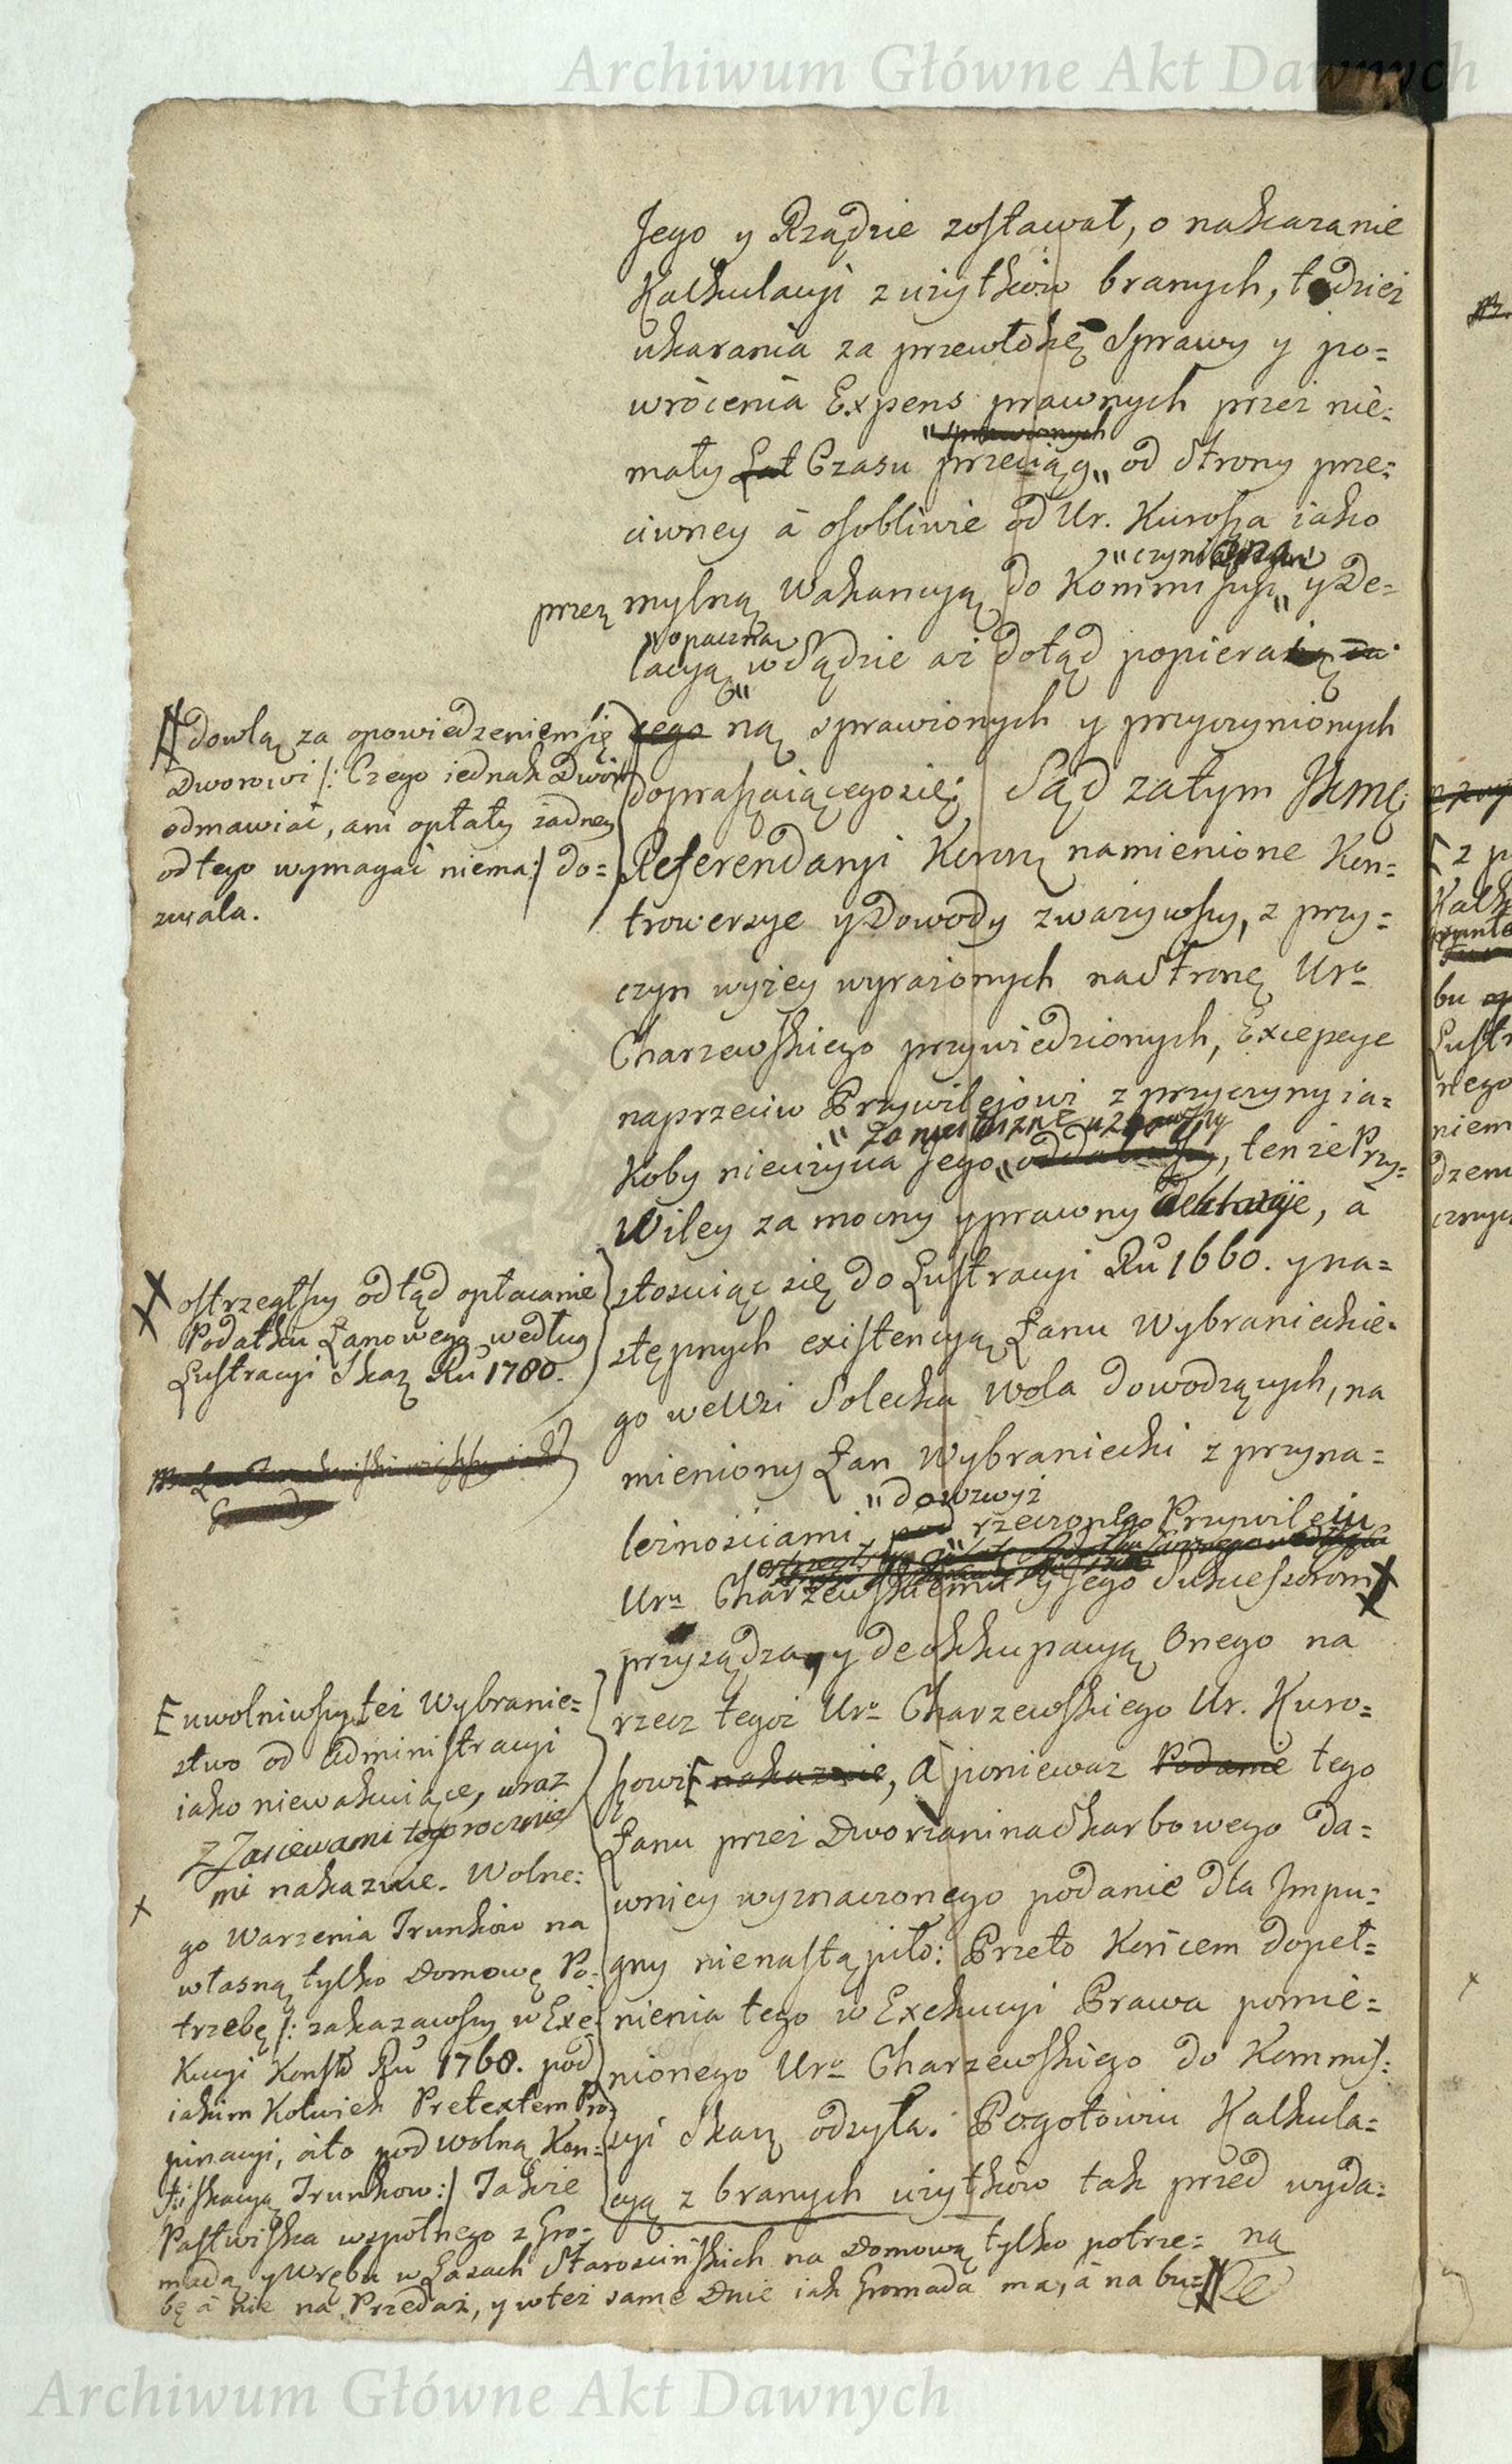 Archiwum Główne Akt Dawnych
Jego y Rządzie zostawał, o nakazanie
Kalkulacyi z użytków branych, tudzież
ukarania za przewłokę Sprawy y po=
wrócenia Expens prawnych przez nie=
mały Lat Czasu przeciąg „ od Strony prze=
ciwney à osobliwie od Ur. Kurosza iako
przez mylną Wakancyą do Kommissyi „ y De=
„opaczną
lacyą „ w Sądzie aż dotąd popiera
cego ną sprawionych y przyczynionych
dopraszaiącego się; Sąd zatym JKMę
Referendaryi Koronę namienione Kon=
trowersye y Dowody zważywszy, z przy=
czyn wyżey wyrażonych na Stronę Uro
Charzewskiego przywiedzionych, Excepcye
naprzeciw Przywilejowi z przyczyny ia=
„ za niesłuszne uznawszy
koby nieużycia Jego „, tenże Przy=
Wiley za mocny y prawny deklaruje, à
stosuiąc się do Lustracyi Ru 1660. y na=
stępnych existencyą Łanu Wybranieckie=
go we Wsi Solecka Wola dowodzących, na
mieniony Łan Wybraniecki z przyna=
„ dowzwyż
leżnościami, pod „ rzeczonego Przywileju
Uro Charzewskiemu y Jego Sukcessorom
przysądza, y deokkupacyą Onego na
rzecz tegoż Uro Charzewskiego Ur. Kuro=
szowi nakazuie, A ponieważ Podanie tego
Łanu przez Dworzanina Skarbowego da=
wniey wyznaczonego podanie dla Impu=
gny nienastąpiło: Przeto Końcem dopeł=
nienia tego w Exekucyi Prawa pomie=
nionego Uro Charzewskiego do Kommis=
syi Skarę odsyła. Pogotowiu Kalkula=
cyą z branych użytków tak przed wyda=
ną
dowlą za opowiedzeniem się
Dworowi /: Czego iednak Dwór
odmawiać, ani opłaty żadney
od tego wymagać niema :/ do=
zwala.
ostrzegłszy odtąd opłacanie
Podatku Łanowego według
Lustracyi Skarę Ru 1780.
uwolniwszy też Wybranie=
stwo od Administracyi
iako niewakuiące, wraz
z Zasiewami tegorocznie
mi nakazuie. Wolne=
go Warzenia Trunków na
własną tylko Domowę Po=
trzebę /: zakazawszy w Exe=
kucyi Konst Ru 1768. pod
iakim Kolwiek Pretextem Pro=
pinacyi, à to pod wolną Kon=
fiskacyą Trunkow :/ Także
Pastwiska wspolnego z Gro=
madą y Wrębu w Lasach Starościńskich na Domową tylko potrze=
bę à nie na Przedaż, y w też same Dnie iak Gromada ma, à na bu=
Archiwum Główne Akt Dawnych